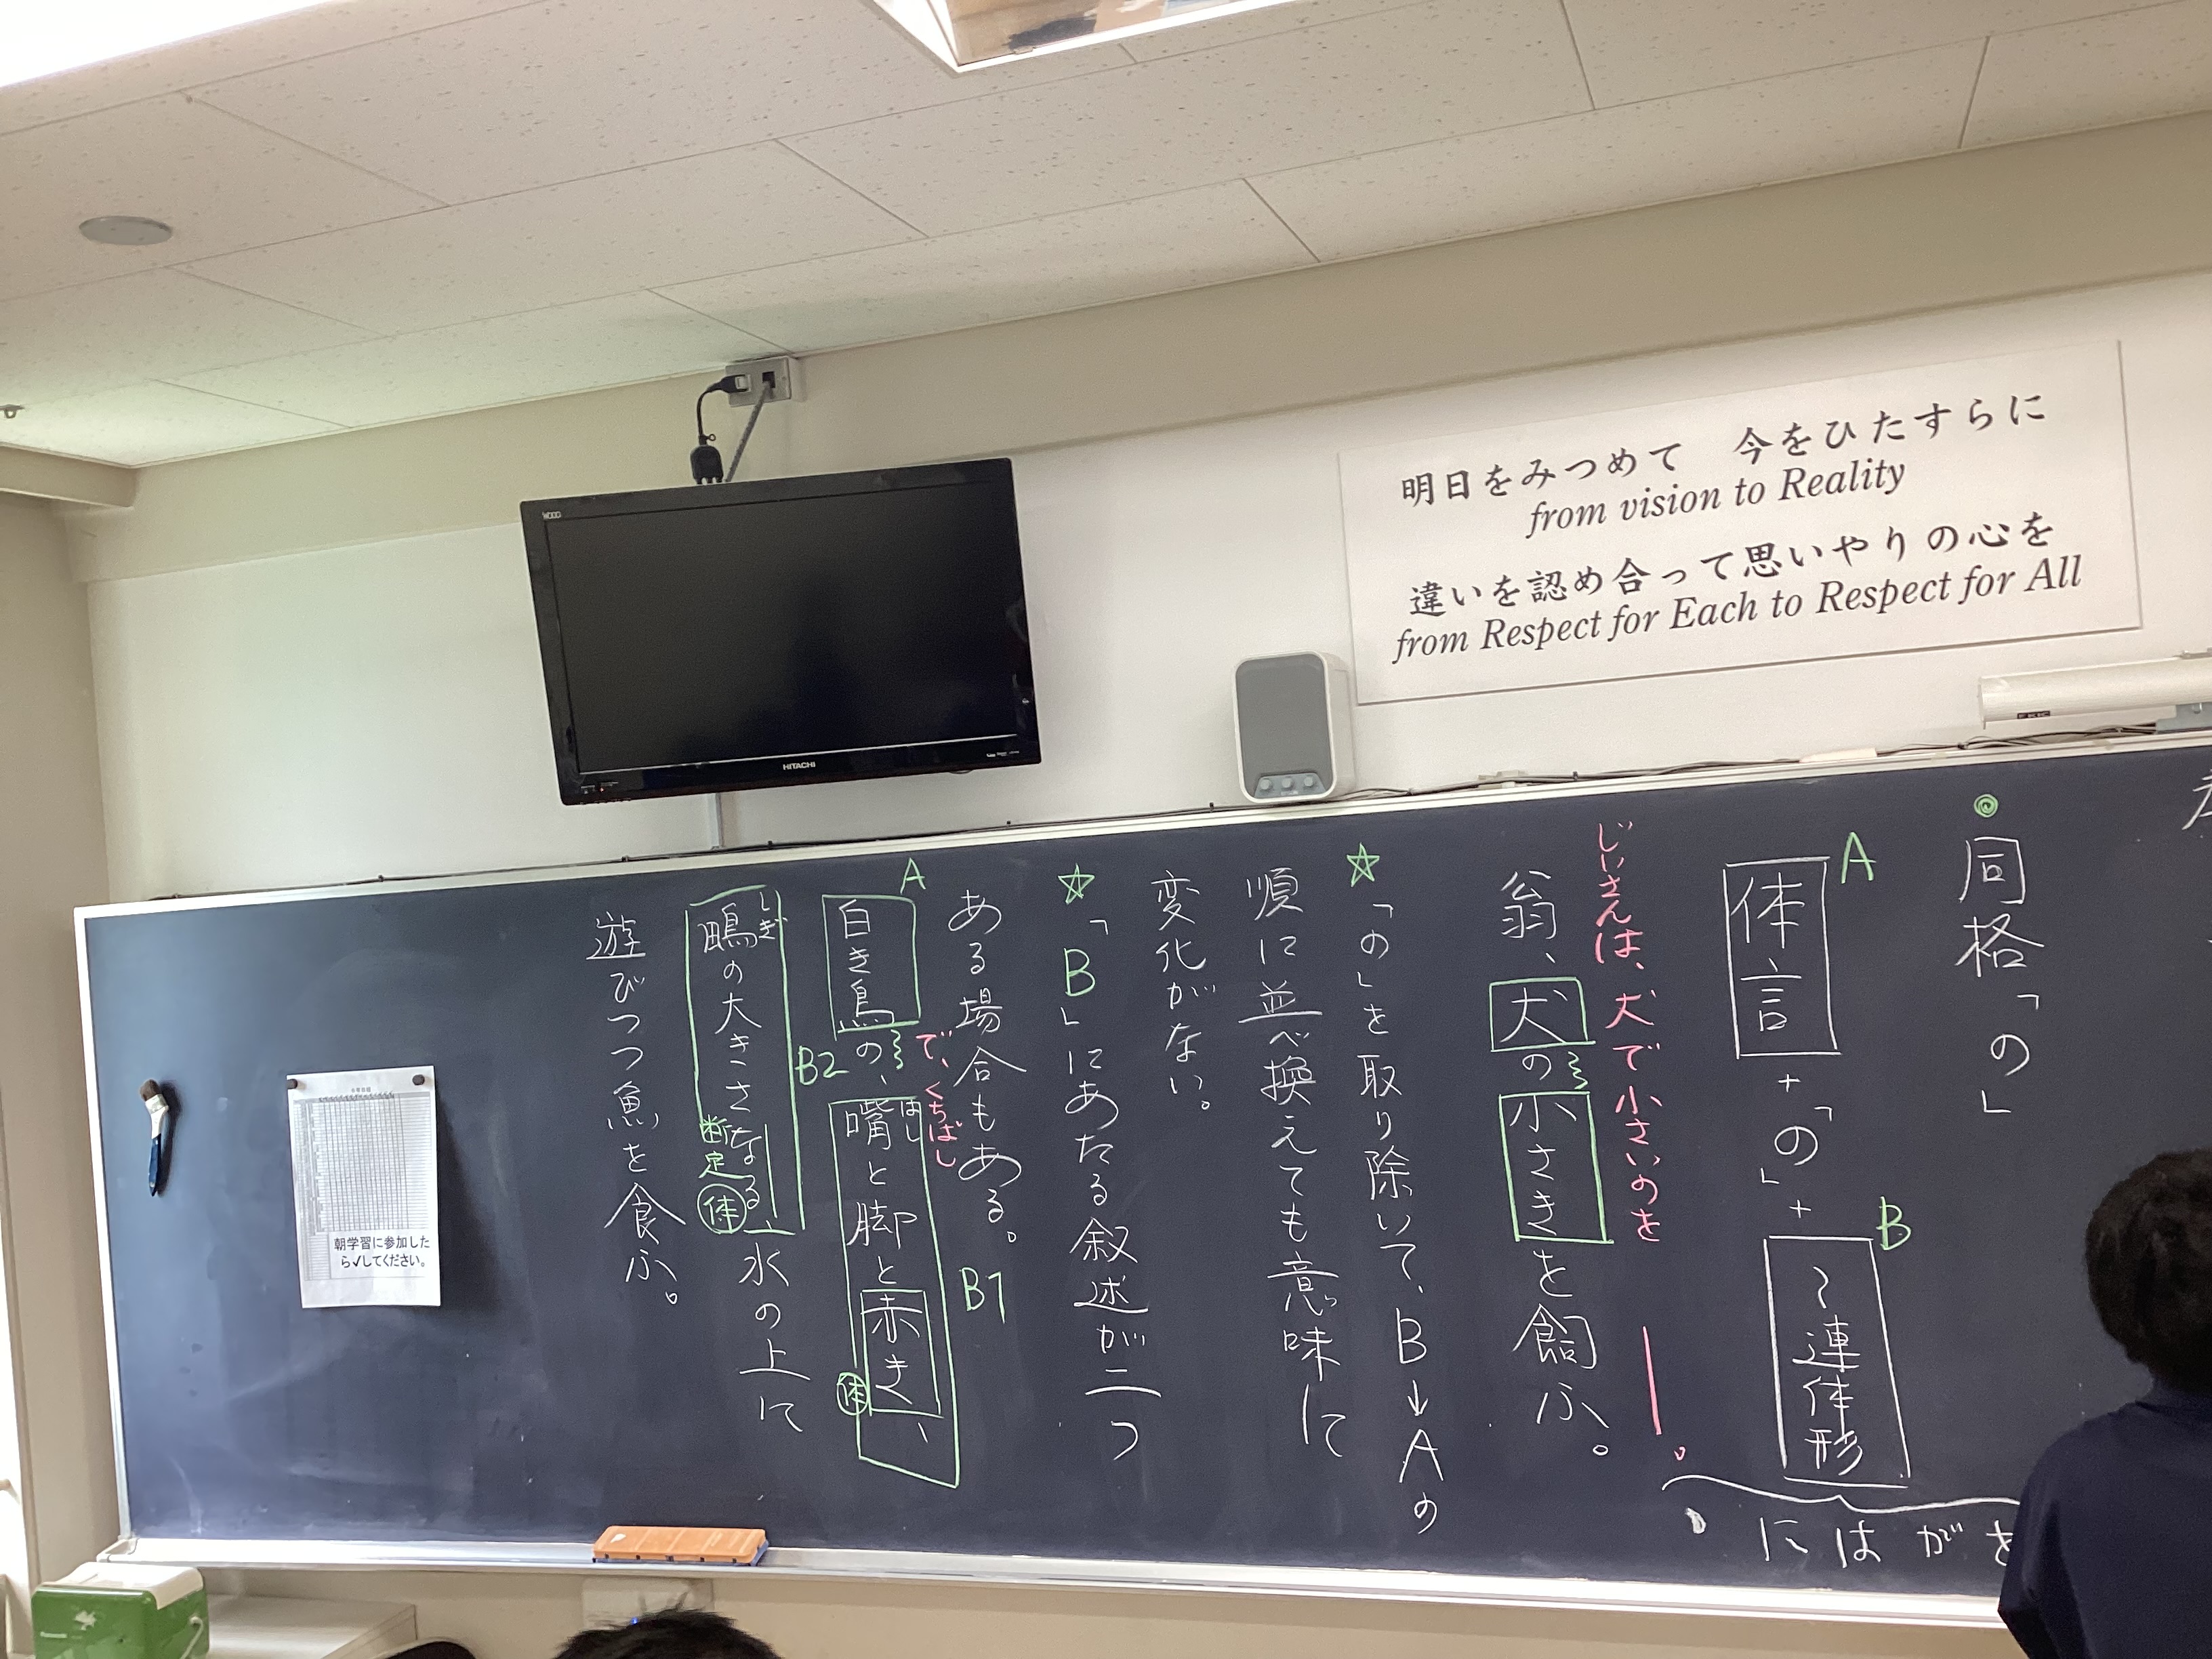 明日をみつめて 今をひたすらに
from vision to Reality
違いを認め合って思いやりの心を
from Respect for Each to Respect for All
HITACHI
WOOO
◎同格「の」
A
体言+「の」+
B
~連体形
をがはに、
じいさんは、犬で小さいのを――。
翁、犬の小さきを飼ふ。
☆「の」を取り除いて、B→Aの
順に並べ換えても意味に
変化がない。
☆「B」にあたる叙述が二つ
ある場合もある。
B1
A
で、くちばし
はし
白き鳥の、嘴と脚と赤き、
体
B2
しぎ
鴫の大きさなる、水の上に
断定
体
遊びつつ魚を食ふ。
朝学習に参加した
ら✓してください。
Panasonic